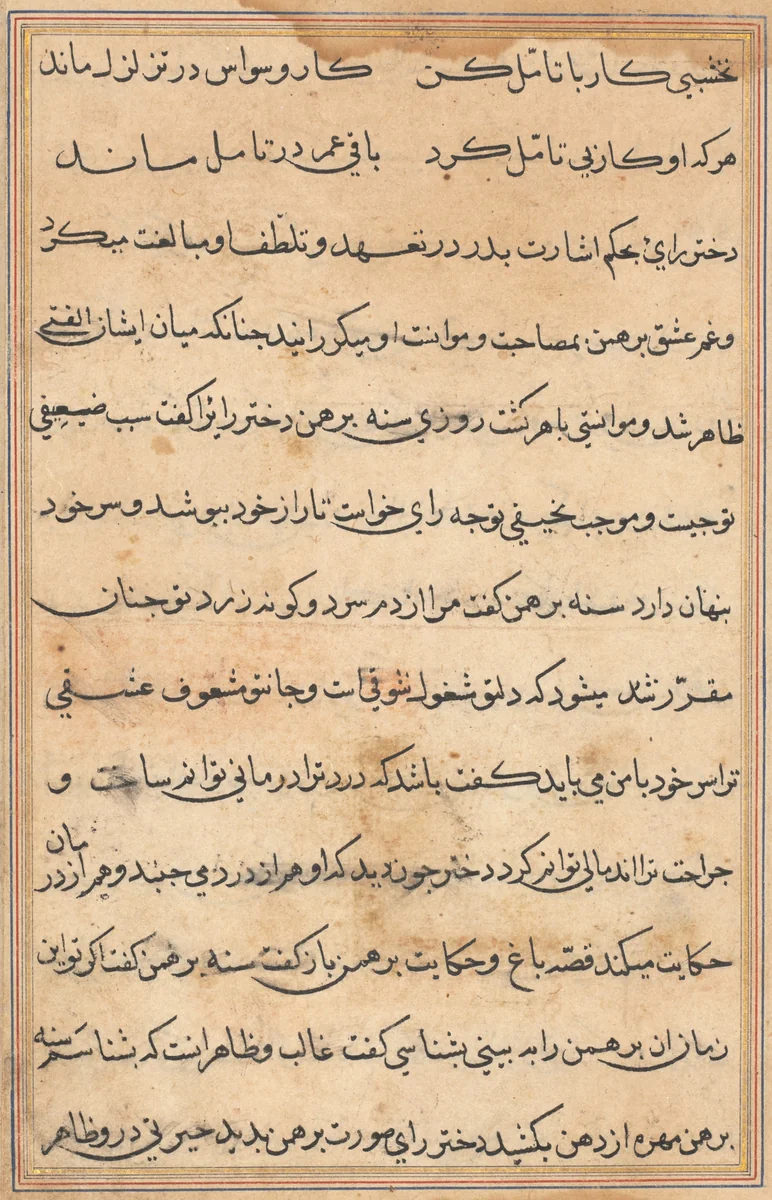 نخشبی کار با تامّل کن کار وسواس در تزلزل ماند
هر که او کار بی تامّل کرد باقی عمر در تامل ماند
دختر رای بحکم اشارت بدر در تعهد و تلطّف او مبالغت میکرد
و غم عشق برهمن بمصاحبت و موانست او میکررانید جنانکه میان ایشان الفتی
ظاهر شد و موانستی باهر کشت روزی سنه برهمن دختر رایرا کفت سبب ضعیفی
تو جیست و موجب نحیفی تو جه رای خواست تا راز خود ببوشد و سر خود
بنهان دارد سنه برهمن کفت مرا از دم سرد و کونه زرد تو جنان
مقرّر شد میشود که دل تو مشغول شوقی است و جان تو مشعوف عشقی
ترا سر خود با من می باید کفت باشد که درد ترا درمانی توانم ساخت و
جراحت ترا اندمالی توانم کرد دختر جون دید که او هم از درد می جنبد و هم از درمان
حکایت میکند قصّه باغ و حکایت برهمن باز کفت سنه برهمن کفت اکر تو این
زمان ان برهمن را به بینی بشناسی کفت غالب و ظاهر انست که بشناسم سنه
برهن مهره از دهن بکشید دختر رای صورت برهمن بدید حیرتی در و ظاهر